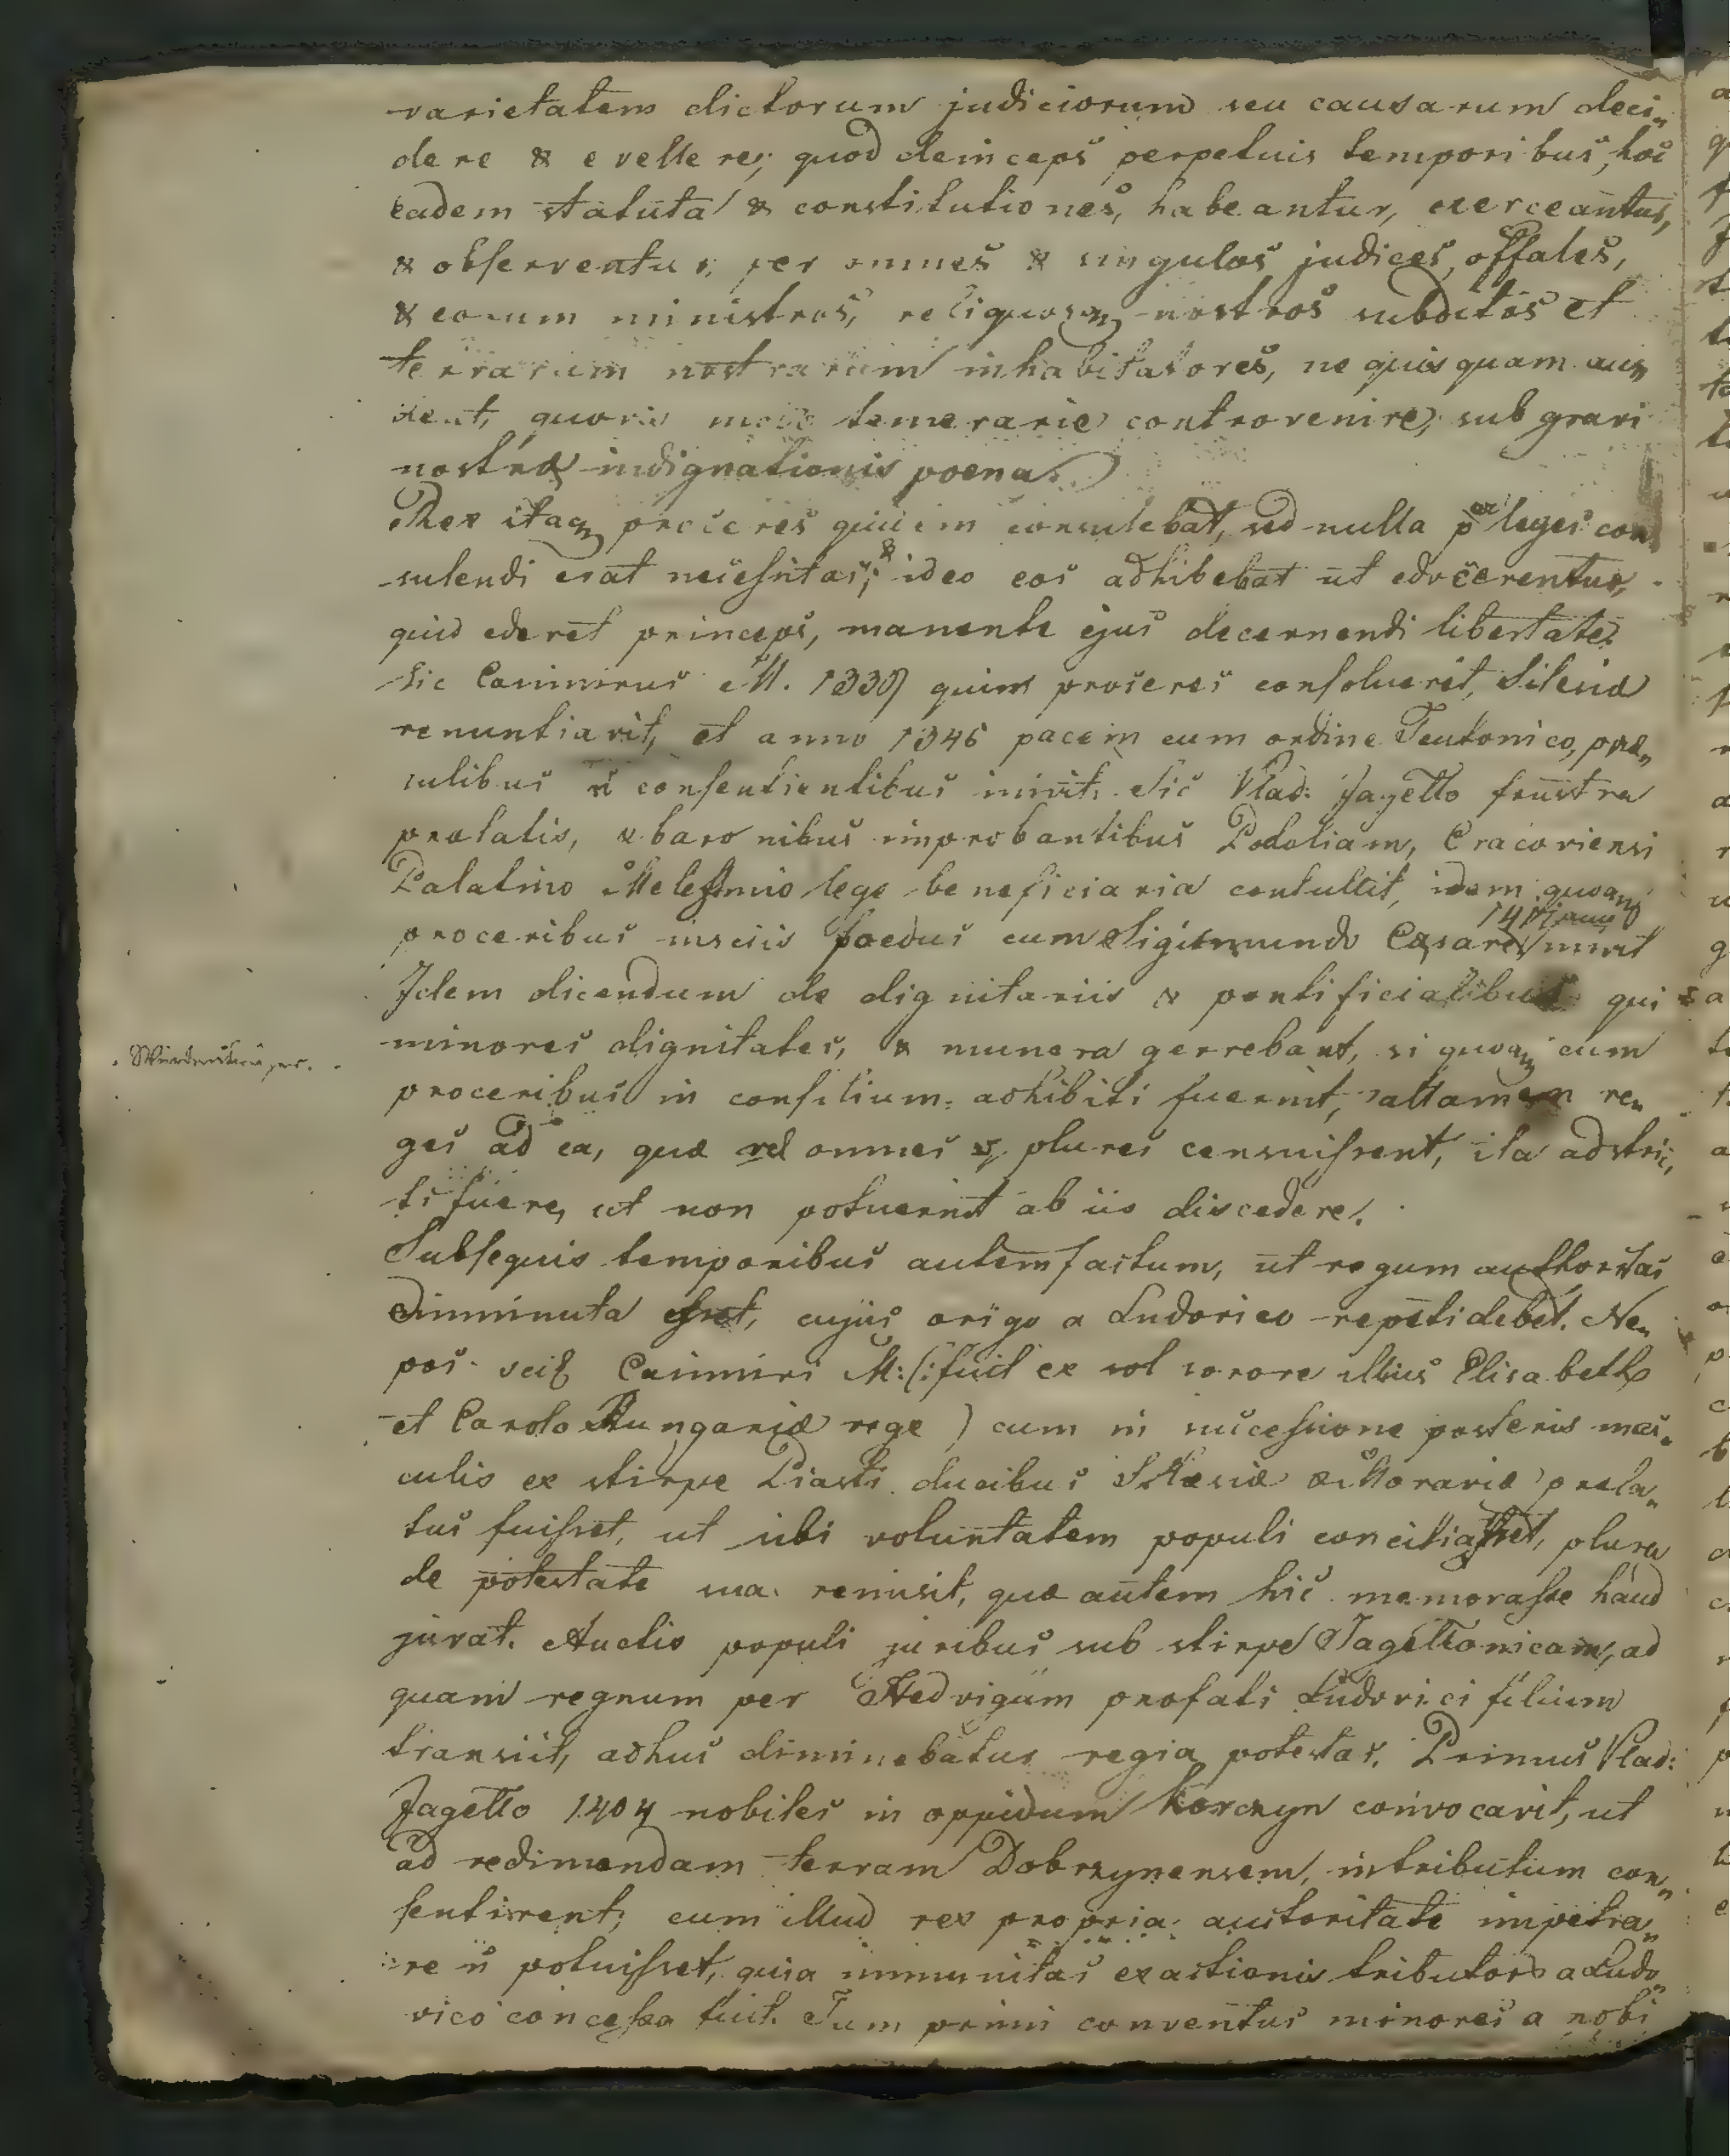 varietatem dictorum judiciorum seu causarum deci„
dere & evellere; quod deinceps perpetuis temporibus, hoc
eadem statuta & constitutiones, habeantur, exerceantur,
& observentur, per omnes & singulos judices, offales,
& eorum ministros, reliquosq nostros subditos et
terrarum nostrarum inhabitatores, ne quisquam au„
deat, quovis modo temerarie controvenire, sub gravi
nostræ indignationis poena.)
Rex itaq proceres quidem consulebat, sed nulla per leges con
sulendi erat necessitas; & ideo eos adhibebat ut edocerentur,
quid ederet princeps, manente ejus decernendi libertate.
Sic Casimirus M. 1339 quim proceres consoluerit, Silesia
renuntiavit, et anno 1346 pacem cum ordine Teutonico, præ„
sulibus n consentientibus iniit. Sic Vlad: Jagello frustra
prælatis, & baronibus improbantibus Podoliam, Cracoviensi
Palatino Melestinio lege beneficiaria contullit, idem quoq
proceribus insciis foedus cum Sigismundo Cæsare iniit
Idem dicendum de dignitariis & pontificialibus qui
minores dignitates, & munera gerrebant, si quoq cum
Würdenträger.
proceribus in consilium adhibiti fuerint, attamen re„
ges ad ea, quæ vel omnes v. plures censuissent, ita adstric„
ti fuere, ut non potuerint ab iis discedere.
Subsequis temporibus autem factum, ut regum authoritas
dimminuta esset, cujus origo a Ludovico repeti debet. Ne„
pos scil Casimiri M: (: fuit ex sol sorore illius Elisabeth
et Carolo Hungariæ rege ) cum in successione posteris mas„
culis ex stirpe Piasti ducibus Silesiæ & Moraviæ præla„
tus fuisset, ut sibi voluntatem populi conciliasset, plura
de potestate sua remisit, quæ autem hic memorasse haud
juvat. Auctis populi juribus sub stirpe Jagellonicam, ad
quam regnum per Hedvigim profati Ludovici filium
transiit, adhuc diminuebatur regia potestas. Primus Vlad:
Jagello 1404 nobiles in oppidum Korczyn convocavit, ut
ad redimendam terram Dobrzynensem, in tributum con„
sentirent; cum illud rex propria auctoritate impetra„
re n potuisset, quia immunitas exactionis tributors a Ludo„
vico concessa fuit. Tum primi conventus minores a nobi